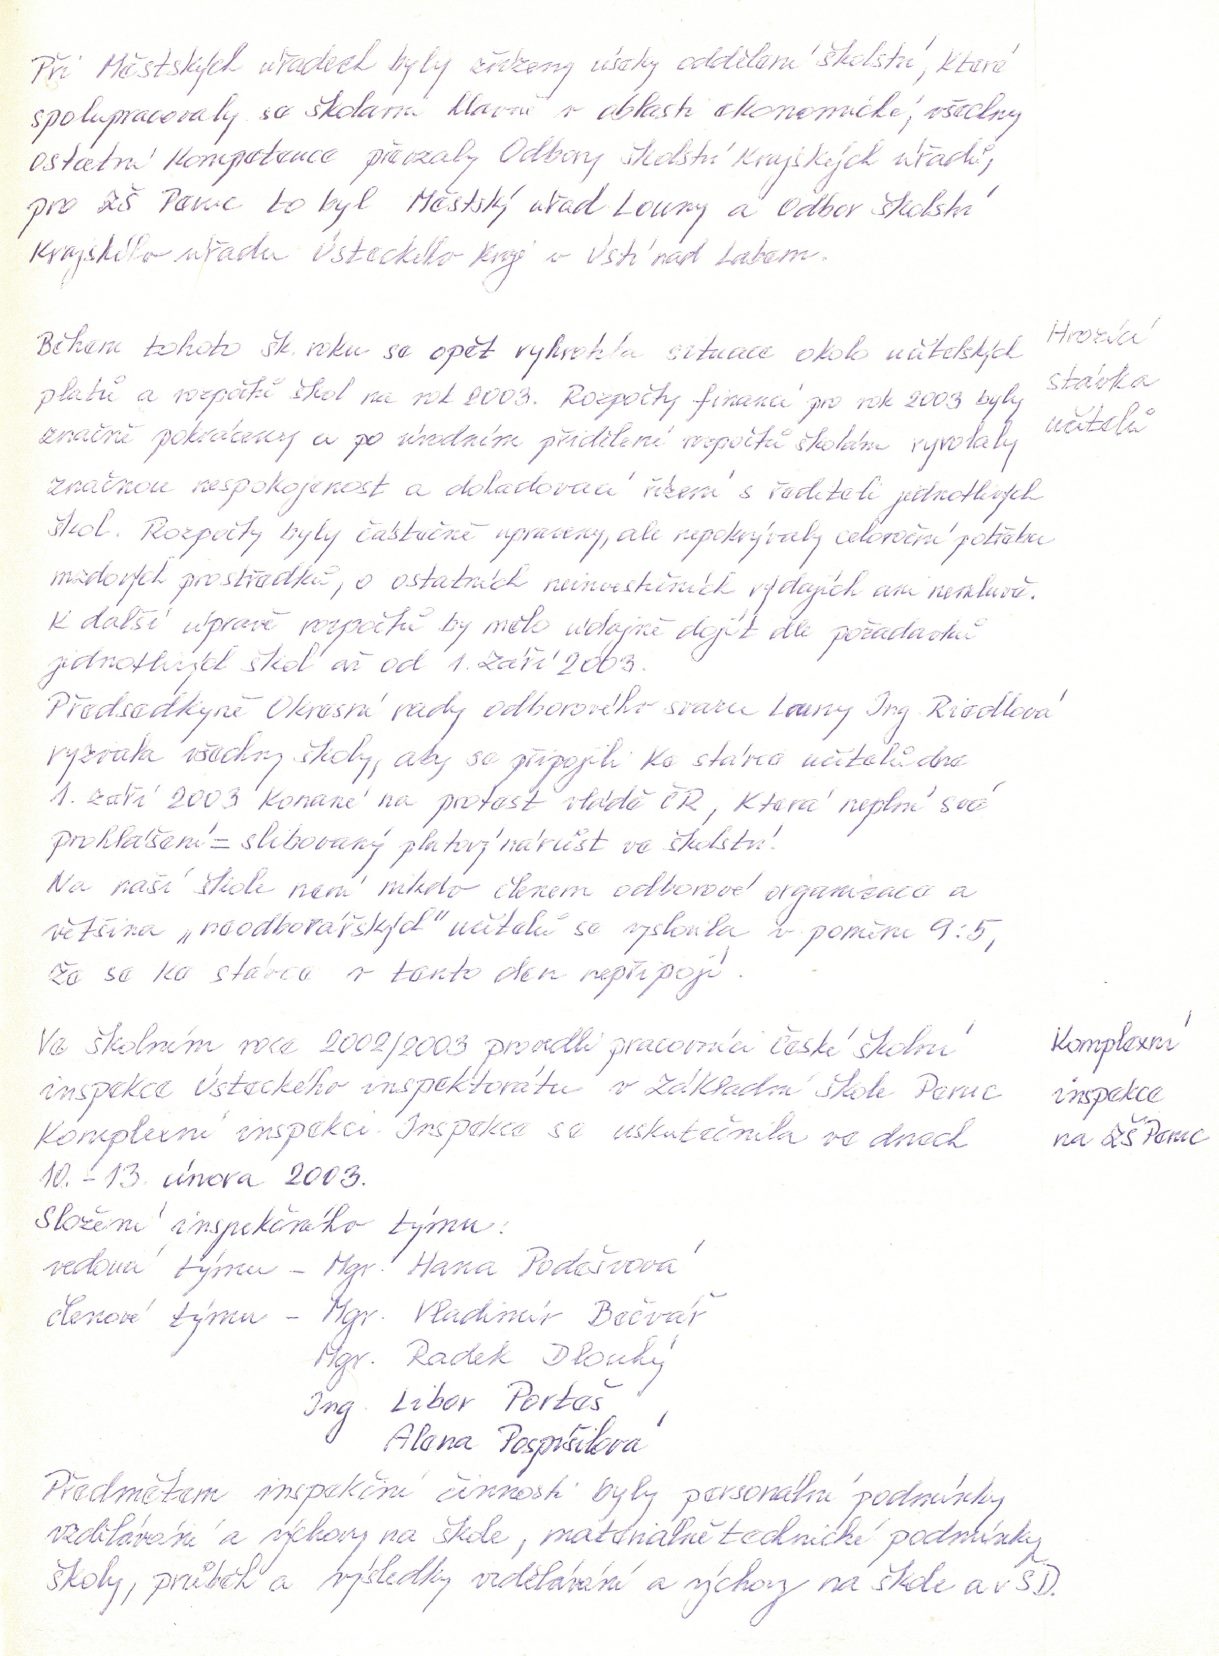 Při Městských úřadech byly zřízeny úseky oddělení školství, které
spolupracovaly se školami hlavně v oblasti ekonomické, všechny
ostatní kompetence převzaly Odbory školství Krajských úřadů,
pro ZŠ Peruc to byl Městský úřad Louny a Odbor školství
Krajského úřadu Ústeckého kraje v Ústí nad Labem.
Během tohoto šk. roku se opět vyhrotila situace okolo učitelských
platů a rozpočtů škol na rok 2003. Rozpočty financí pro rok 2003 byly
značně pokráceny a po úředním přidělení rozpočtů školám vyvolaly
značnou nespokojenost a dohadovací řízení s řediteli jednotlivých
škol. Rozpočty byly částečně upraveny, ale nepokrývaly celoroční potřebu
mzdových prostředků, o ostatních neinvestičních výdajích ani nemluvě.
K další úpravě rozpočtů by mělo údajně dojít dle požadavků
jednotlivých škol až od 1. září 2003.
Předsedkyně Okresní rady odborového svazu Louny Ing. Riedlová
vyzvala všechny školy, aby se připojili ke stávce učitelů dne
1. září 2003 konané na protest vládě ČR, která neplní své
prohlášení = slibovaný platový nárůst ve školství.
Na naší škole není nikdo členem odborové organizace a
většina „neodborářských" učitelů se vyslovila v poměru 9:5,
že se ke stávce v tento den nepřipojí.
Hrozící
stávka
učitelů
Ve školním roce 2002/2003 provedli pracovníci České školní
inspekce Ústeckého inspektorátu v Základní škole Peruc
Komplexní inspekci. Inspekce se uskutečnila ve dnech
10. - 13. února 2003.
Složení inspekčního týmu:
vedoucí týmu - Mgr. Hana Poděšvová
členové týmu - Mgr. Vladimír Bečvář
Mgr. Radek Dlouhý
Ing. Libor Porteš
Alena Pospíšilová
Předmětem inspekční činnosti byly personální podmínky
vzdělávání a výchovy na škole, materiálně technické podmínky
školy, průběh a výsledky vzdělávání a výchovy na škole a v ŠD.
Komplexní
inspekce
na ZŠ Peruc